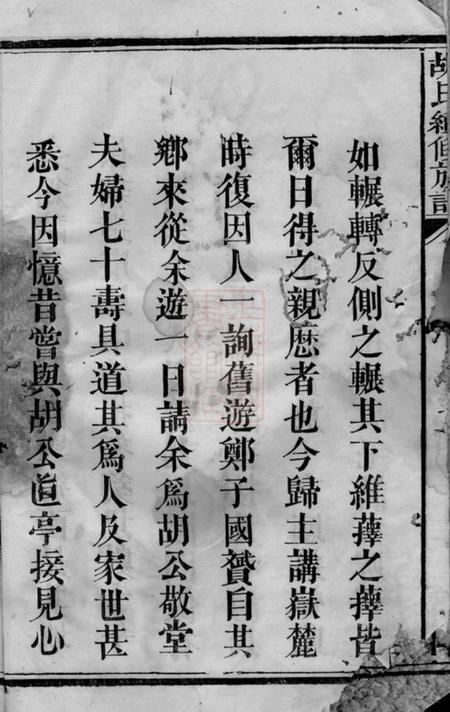 胡氏續修族譜
如輾轉反側之輾其下維蘀之蘀皆
爾日得之親歷者也今歸主講嶽麓
時復因人一詢舊遊鄭子國贊自其
鄉來從余遊一日請余為胡公敬堂
夫婦七十壽具道其為人及家世甚
悉今因憶昔嘗與胡公直亭接見心